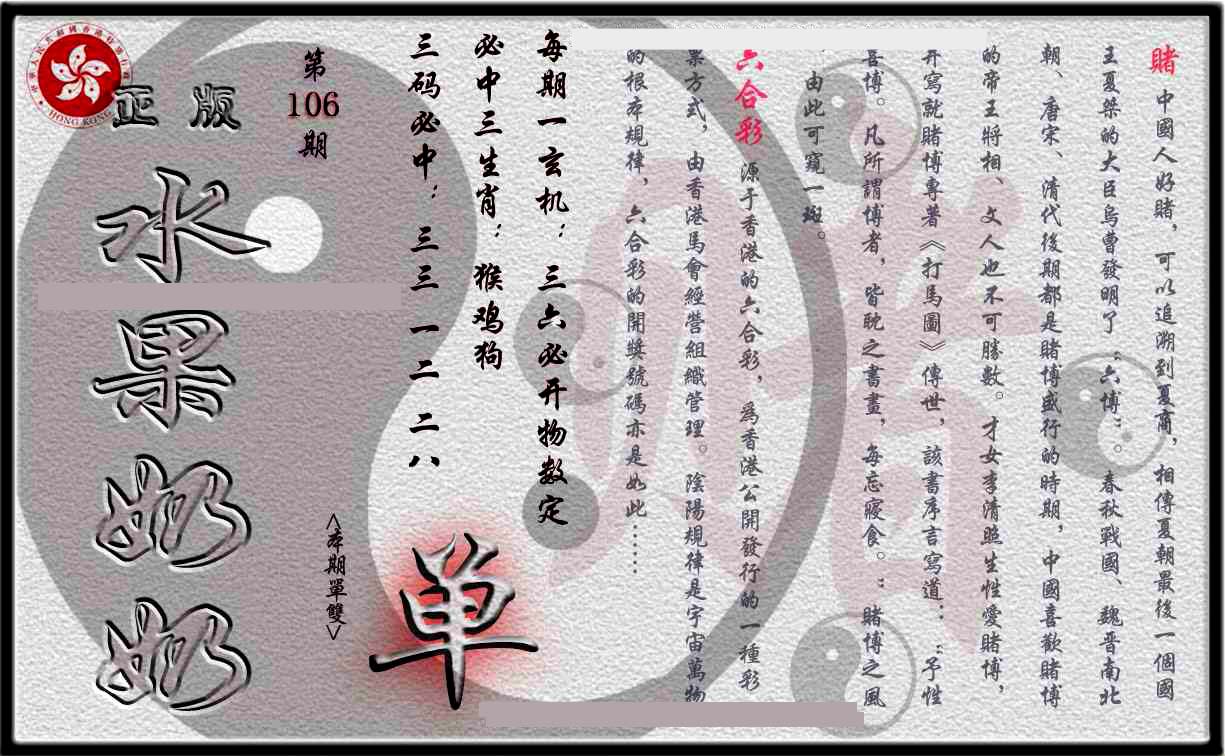 賭 中國人好賭，可以追溯到夏商，相傳夏朝最後一個國
王夏桀的大臣烏曹發明了“六博”。春秋戰國、魏晋南北
朝、唐宋、清代後期都是賭博盛行的時期，中國喜歡賭博
的帝王將相、文人也不可勝數。才女李清照生性愛賭博，
并寫就賭博專著《打馬圖》傳世，該書序言寫道：“予性
喜博。凡所謂博者，皆耽之書畫，每忘寢食。”賭博之風
由此可窺一斑。
六合彩 源于香港的六合彩，爲香港公開發行的一種彩
票方式，由香港馬會經營組織管理。陰陽規律是宇宙萬物
的根本規律，六合彩的開獎號碼亦是如此……
每期一玄机：三六必开物数定
必中三生肖：猴鸡狗
三码必中：三三 一二 二八
单
<本期單雙>
第106期
正版
水果奶奶
HONG KONG